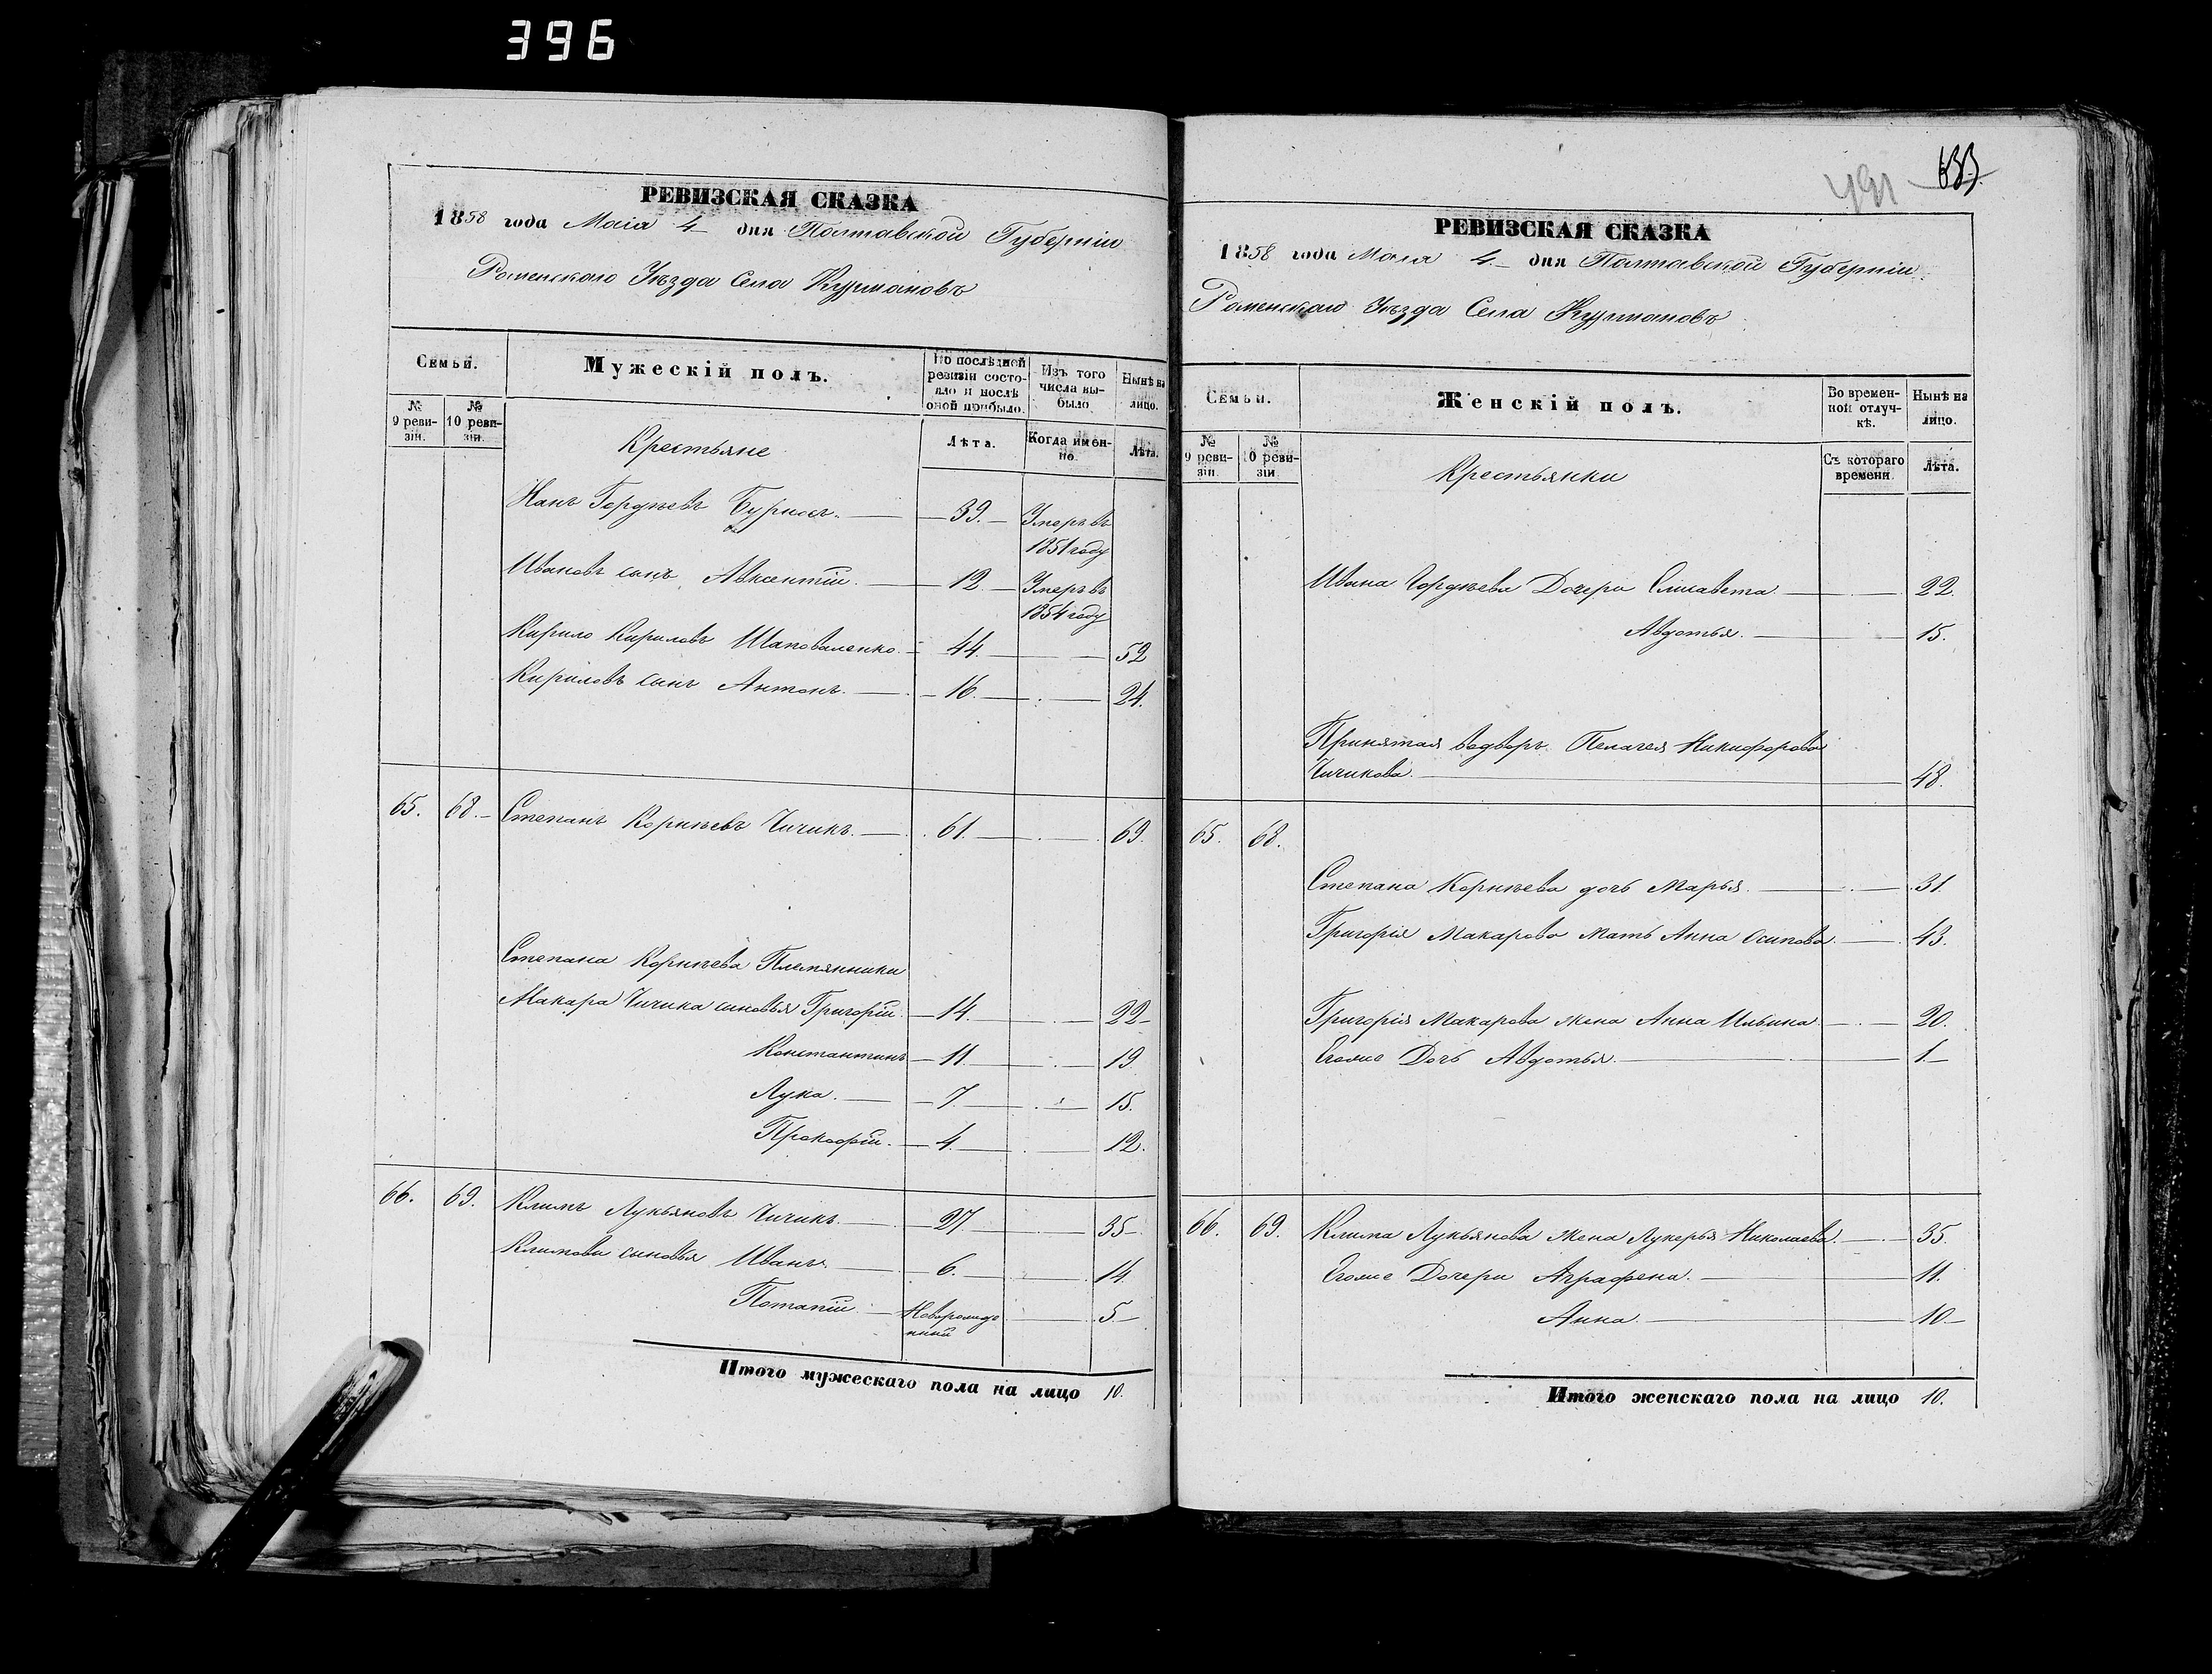 396
РЕВИЗСКАЯ СКАЗКА
1858 года Маія 4 дня Полтавской Губерніи
Роменскаго Уѣзда Села Курмановъ
Семьи.
Мужескій полъ.
По послѣдней ревизіи состояло и послѣ оной прибыло.
Изъ того числа выбыло
Нынѣ на лицо.
№ 9 ревизіи.
№ 10 ревизіи.
Крестьяне
Лѣта.
Когда именно.
Лѣта.
Гордѣевъ 39. Умеръ въ
1851 году
Ивановъ сынъ Авксентій. 12. Умеръ въ
1854 году
Кирило Кириловъ Шаповаленко. 44. 52
Кириловъ сынъ Антонъ. 16. 24.
65. 68. Степанъ Корнѣевъ Чичикъ. 61. 69.
Степана Корнѣева Племянники
Макара Чичика сыновья Григорій. 14. 22
Константинъ 11. 19
Лука. 7. 15.
Прокофій. 4. 12.
66. 69. Климъ Лукьяновъ Чичикъ. 27 35
Климовы сыновья Иванъ 6. 14.
Потапій Новорожде
нный 5
Итого мужескаго пола на лицо 10.
491 633
РЕВИЗСКАЯ СКАЗКА
1858 года Маія 4. дня Полтавской Губерніи
Роменскаго Уѣзда Села Курмановъ
Семьи.
Женскій полъ.
Во временной отлучкѣ.
Нынѣ на лицо.
№ 9 ревизіи.
№ 10 ревизіи
Крестьянки
Съ котораго времени
Лѣта.
Ивана Гордѣева Дочери Елисавета 22.
Авдотья. 15.
Принятая водворъ Пелагея Никифорова
Чичикова. 48.
65. 68.
Степана Корнѣева дочь Марья. 31.
Григорія Макарова Мать Анна Осипова. 43.
Григорія Макарова жена Анна Ильина 20.
Егоже Дочь Авдотья. 1
66. 69. Клима Лукьянова жена Лукерья Николаева. 35.
Егоже Дочери Аграфена. 11.
Анна. 10
Итого женскаго пола на лицо 10.